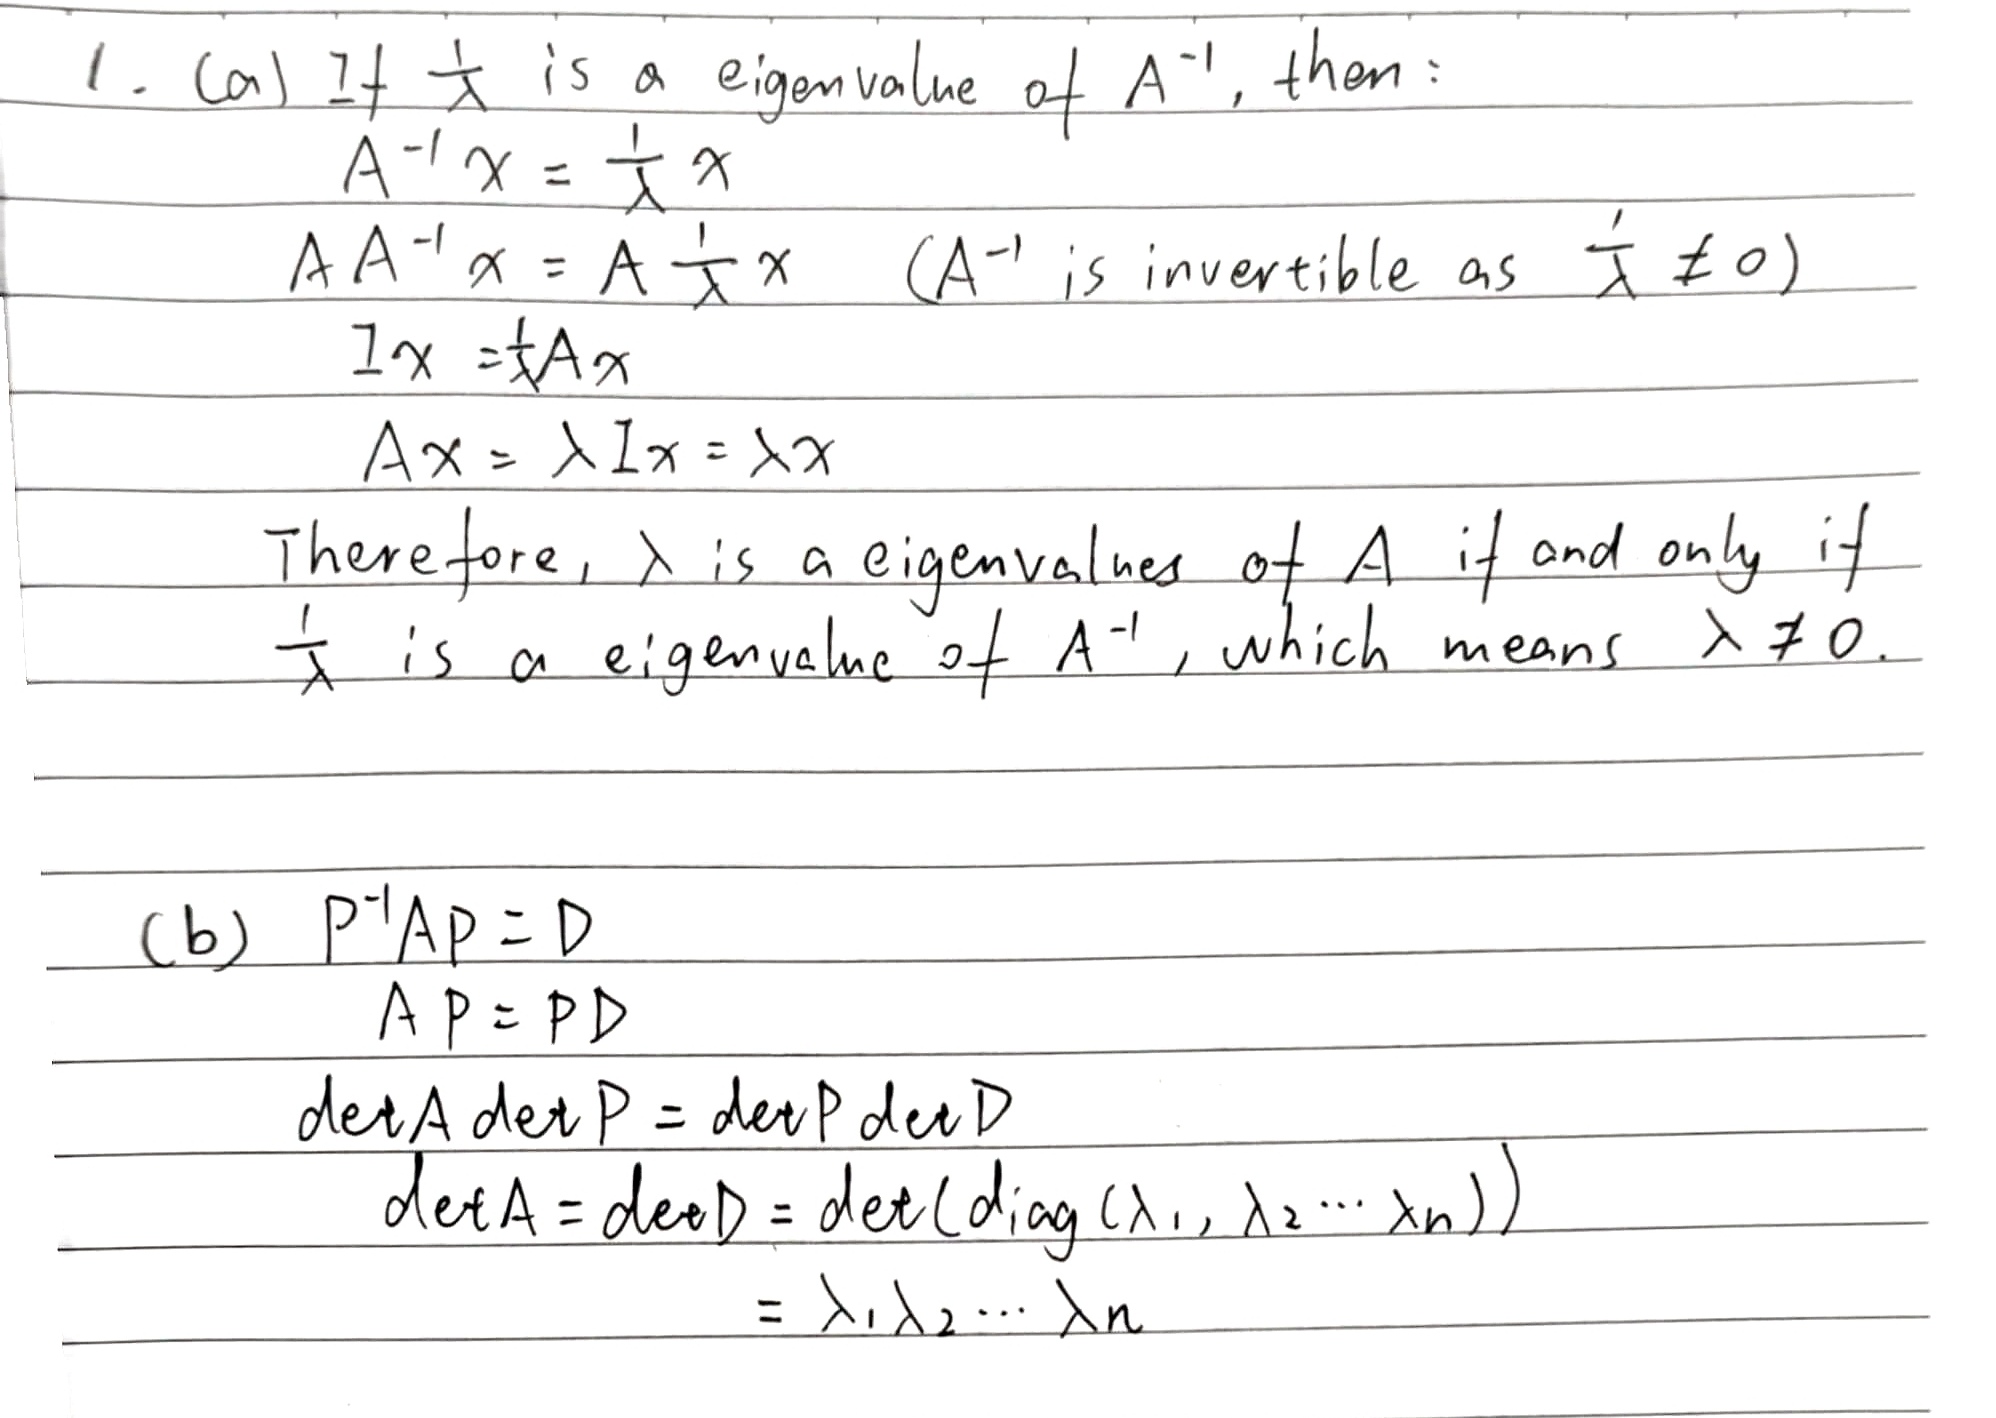 1. (a) If 1/λ is a eigenvalue of A⁻¹, then:
A⁻¹x = 1/λ x
AA⁻¹x = A 1/λ x (A⁻¹ is invertible as 1/λ ≠ 0)
Ix = 1/λ Ax
Ax = λIx = λx
Therefore, λ is a eigenvalues of A if and only if
1/λ is a eigenvalue of A⁻¹, which means λ ≠ 0.
(b) P⁻¹AP = D
AP = PD
detA detP = detP detD
detA = detD = det(diag(λ₁, λ₂ ··· λn))
= λ₁λ₂ ··· λn